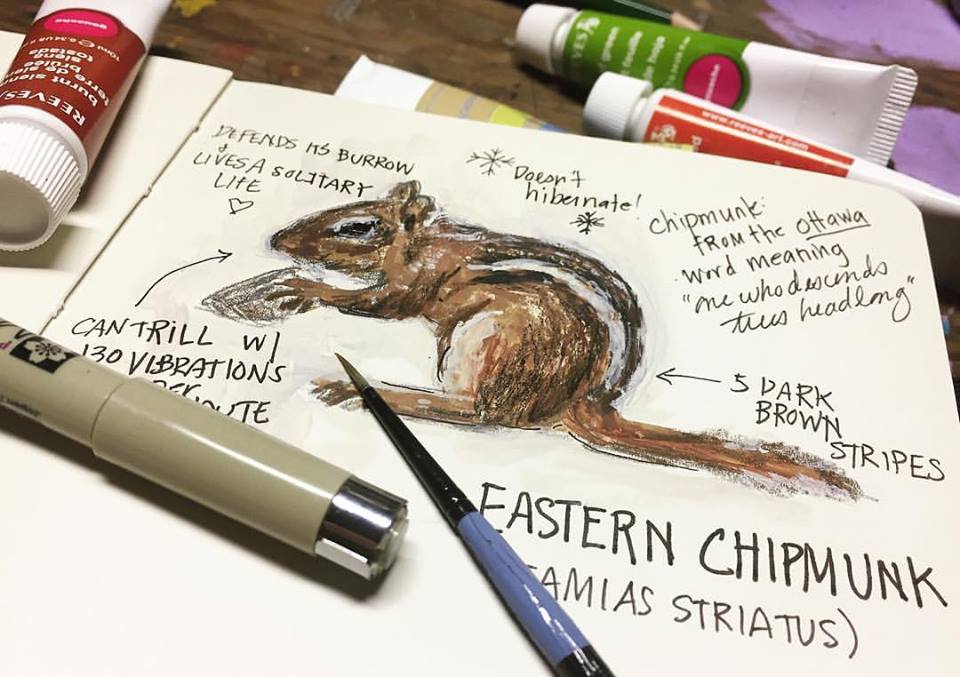 gouache
10ml ℮ 0.34 US
REEVES
burnt siena
terre de sienne
brûlée
siena
tostada
gouache
www.reeves-art.com
DEFENDS ITS BURROW
&
LIVES A SOLITARY
LIFE
Doesn't
hibernate!
Chipmunk:
FROM the Ottawa
word meaning
"one who descends
trees headlong"
CAN TRILL W/
130 VIBRATIONS
5 DARK
BROWN
STRIPES
EASTERN CHIPMUNK
TAMIAS STRIATUS)